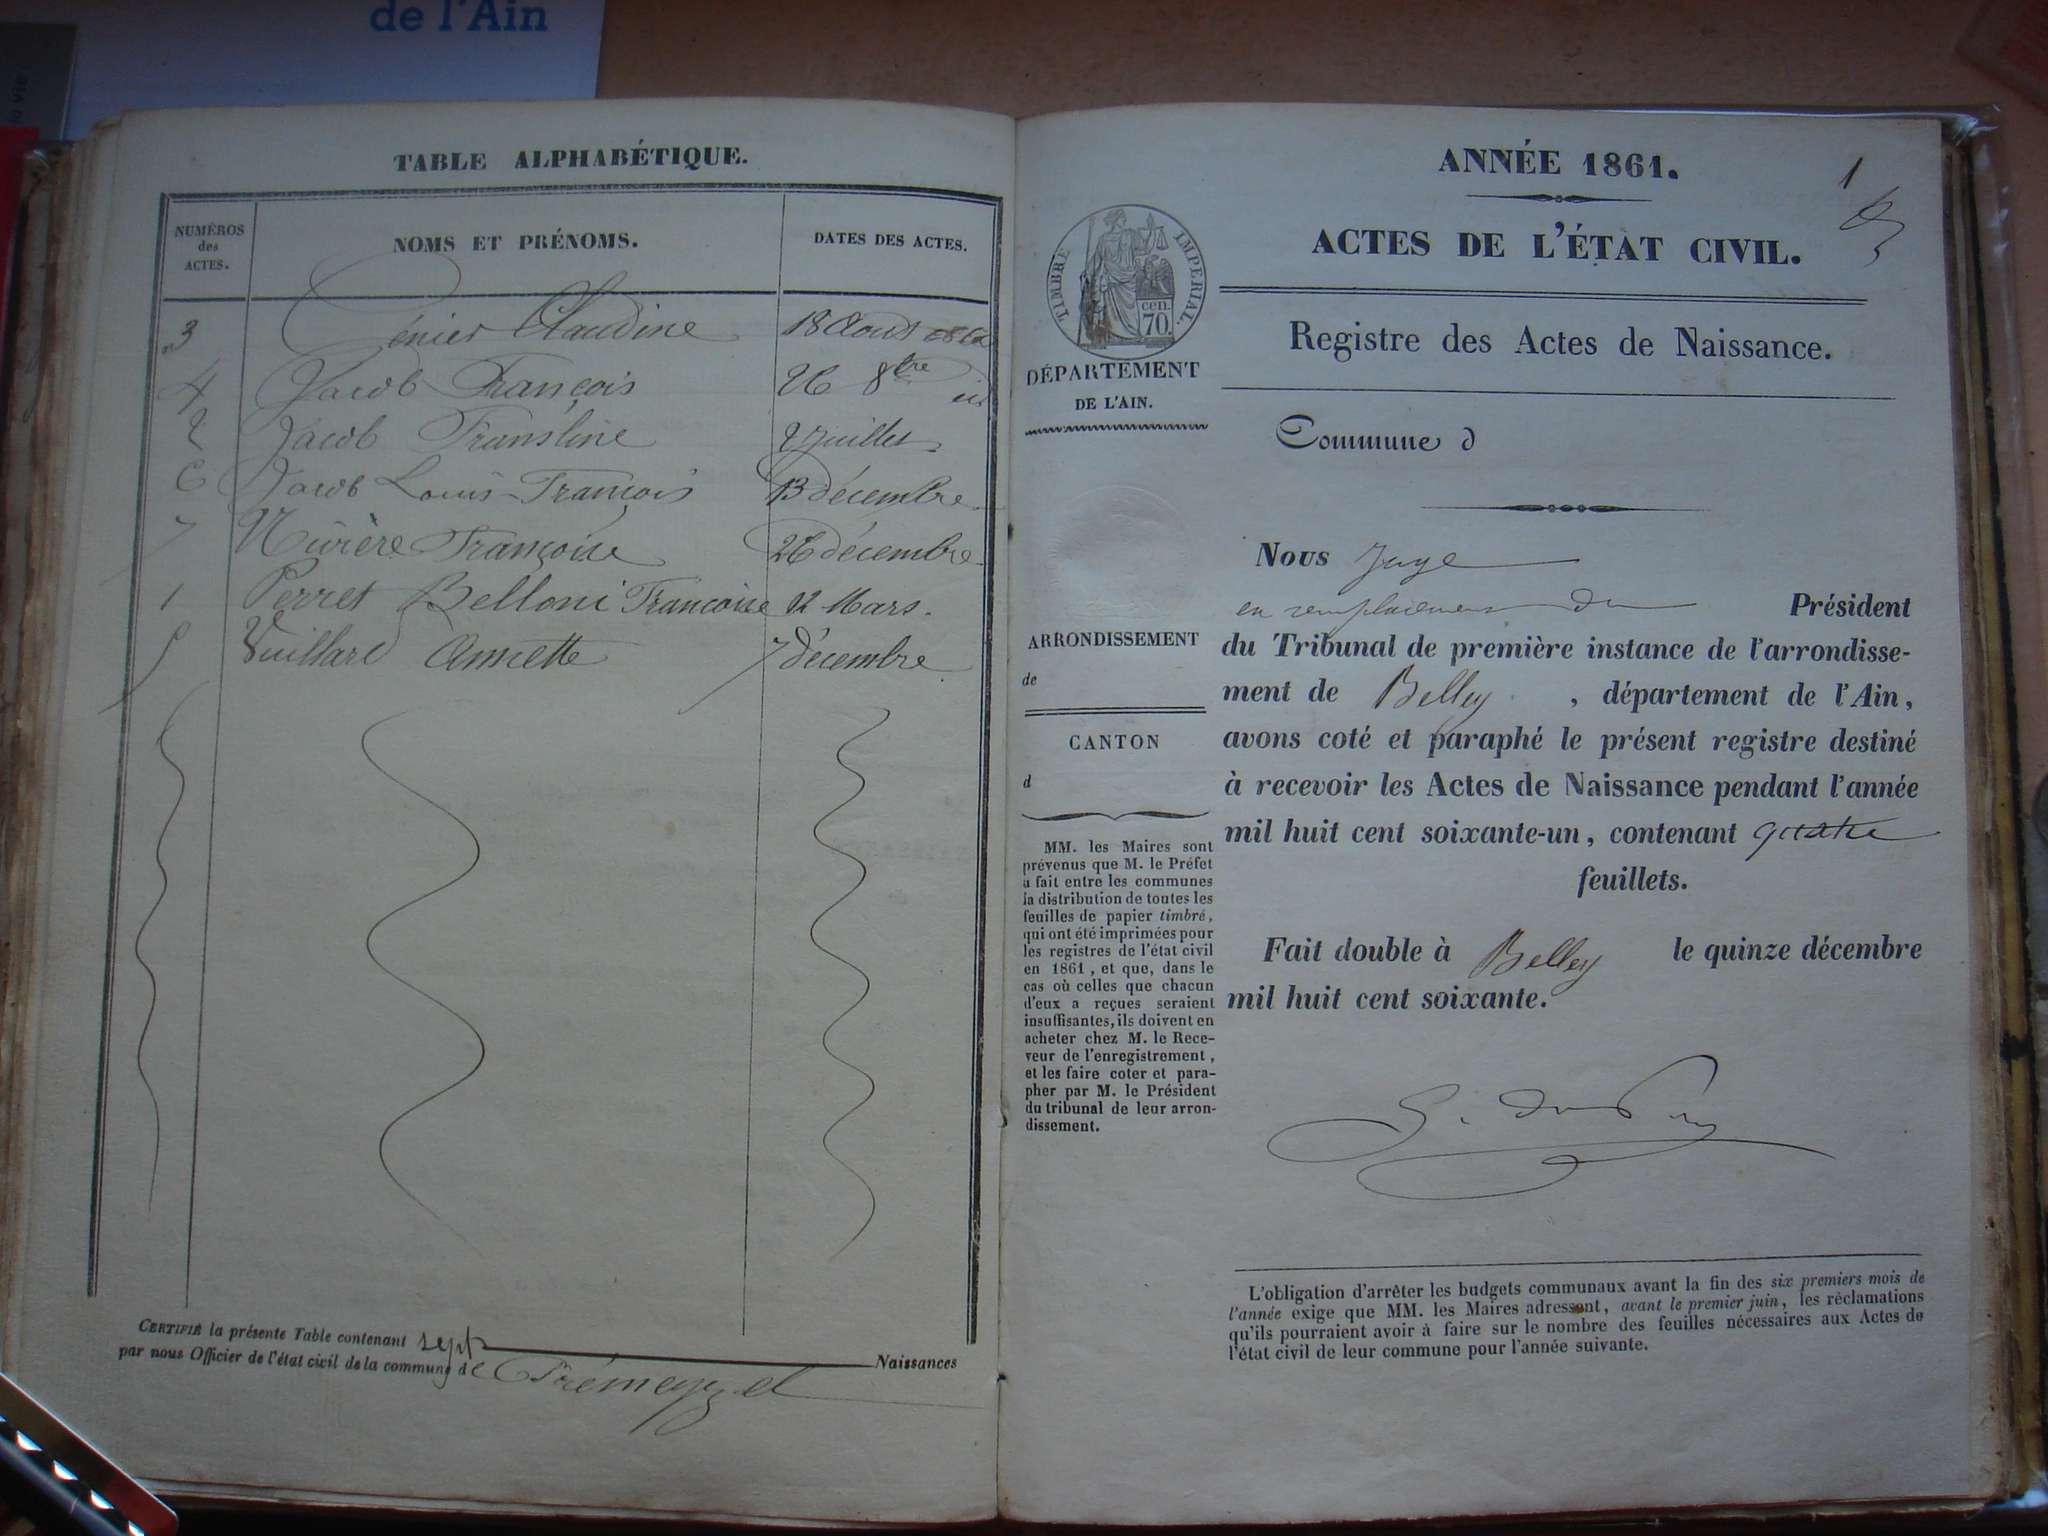 de l'Ain
la vie
TABLE ALPHABÉTIQUE.
NUMÉROS des ACTES. NOMS ET PRÉNOMS. DATES DES ACTES.
3 Génier Claudine 18 Aout 1860
4 Jacob François 26 8bre id
2 Jacob Fransline 2 Juillet
6 Jacob Louis-François 13 décembre
7 Nivière Françoise 26 décembre
1 Perret Belloni Francoise 12 Mars.
5 Vuillard Annette 7 décembre
CERTIFIÉ la présente Table contenant sept Naissances
par nous Officier de l'état civil de la commune de Prémeyzel
ANNÉE 1861.
1
ACTES DE L'ÉTAT CIVIL.
TIMBRE IMPÉRIAL.
cen.
70.
Registre des Actes de Naissance.
DÉPARTEMENT
DE L'AIN.
Commune d
Nous Juge
en remplacement du Président
du Tribunal de première instance de l'arrondisse-
ment de Belley , département de l'Ain,
avons coté et paraphé le présent registre destiné
à recevoir les Actes de Naissance pendant l'année
mil huit cent soixante-un, contenant quatre
feuillets.
Fait double à Belley le quinze décembre
mil huit cent soixante.
ARRONDISSEMENT
de
CANTON
d
MM. les Maires sont
prévenus que M. le Préfet
a fait entre les communes
la distribution de toutes les
feuilles de papier timbré,
qui ont été imprimées pour
les registres de l'état civil
en 1861, et que, dans le
cas où celles que chacun
d'eux a reçues seraient
insuffisantes, ils doivent en
acheter chez M. le Rece-
veur de l'enregistrement,
et les faire coter et para-
pher par M. le Président
du tribunal de leur arron-
dissement.
L'obligation d'arrêter les budgets communaux avant la fin des six premiers mois de
l'année exige que MM. les Maires adressent, avant le premier juin, les réclamations
qu'ils pourraient avoir à faire sur le nombre des feuilles nécessaires aux Actes de
l'état civil de leur commune pour l'année suivante.